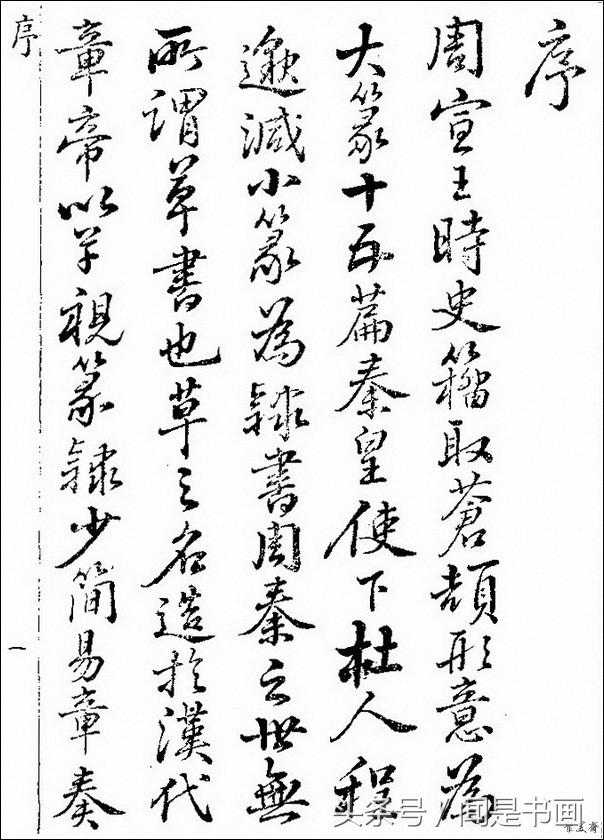 序
周宣王時史籀取蒼頡形意為
大篆十五篇秦皇使下杜人程
邈減小篆為隸書周秦之世無
所謂草書也草之名造於漢代
章帝以草視篆隸少簡易章奏
序
一
头条号/闻是书画